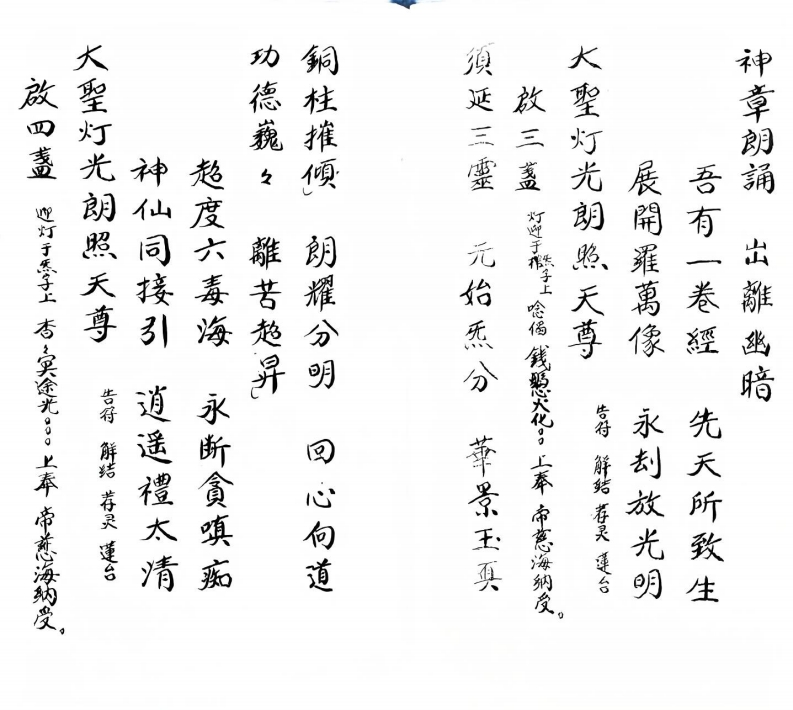 神章朗誦 出離幽暗
吾有一卷經 先天所致生
展開羅萬像 永刦放光明
大聖灯光朗照天尊 告符 解結 荐灵 蓮台
啟三盞 灯迎于炁字上 唸偈 錢憑火化。。上奉 帝慈海納受。
須延三靈 元始炁分 華景玉真
銅柱摧傾 朗耀分明 回心向道
功德巍々 離苦超昇
超度六毒海 永断貪嗔痴
神仙同接引 逍遥禮太清
大聖灯光朗照天尊 告符 解結 荐灵 蓮台
啟四盞 迎灯于炁字上 杳々冥途光。。。上奉 帝慈海納受。